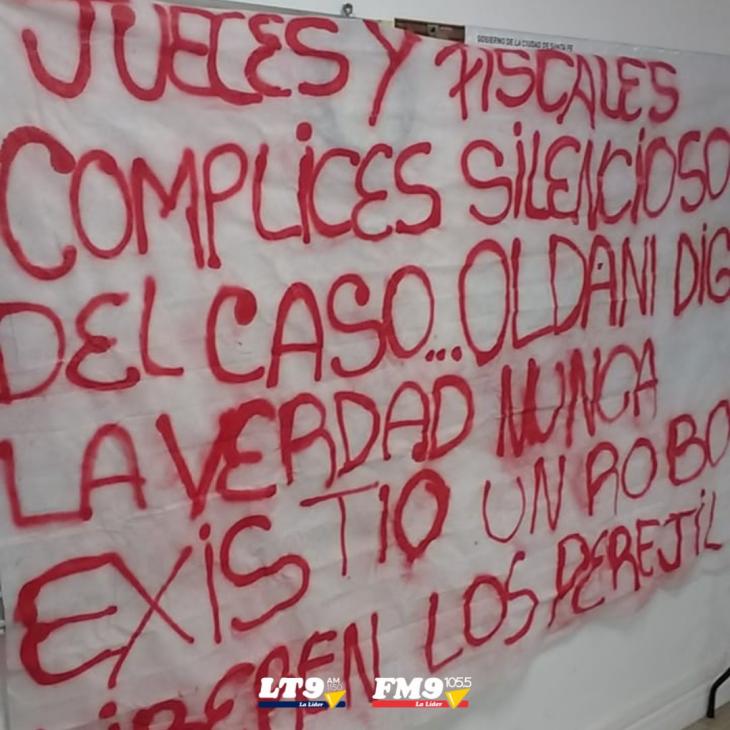 GOBIERNO DE LA CIUDAD DE SANTA FE
JUECES Y FISCALES
COMPLICES SILENCIOSO
DEL CASO...OLDANI DIG
LA VERDAD NUNCA
EXISTIO UN ROBO
LIBEREN LOS PEREJIL
LT9 AM 1150 La Líder
FM9 105.5 La Líder